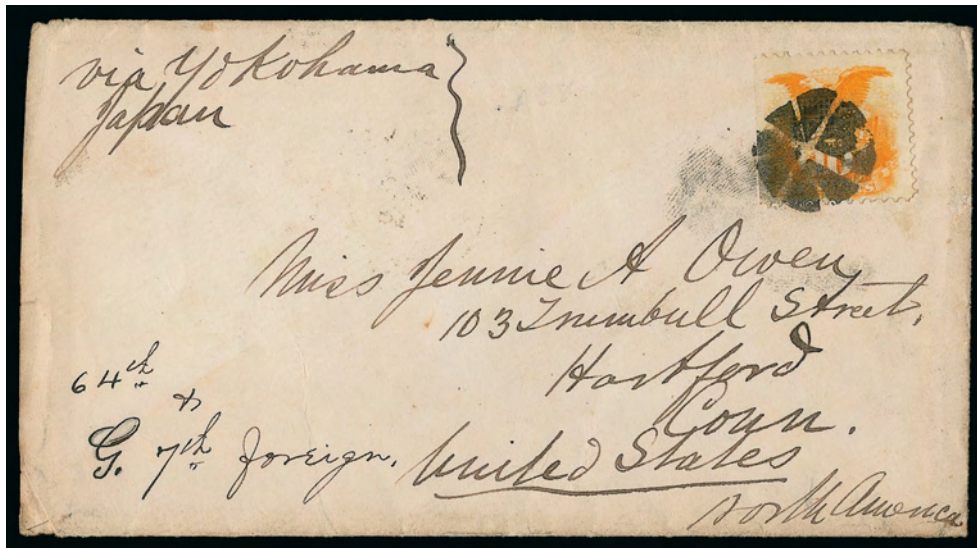 via Yokohama
Japan
Miss Jennie A Owen
103 Trumbull Street.
Hartford
Conn.
United States
North America
64th
&
G. 7th foreign.